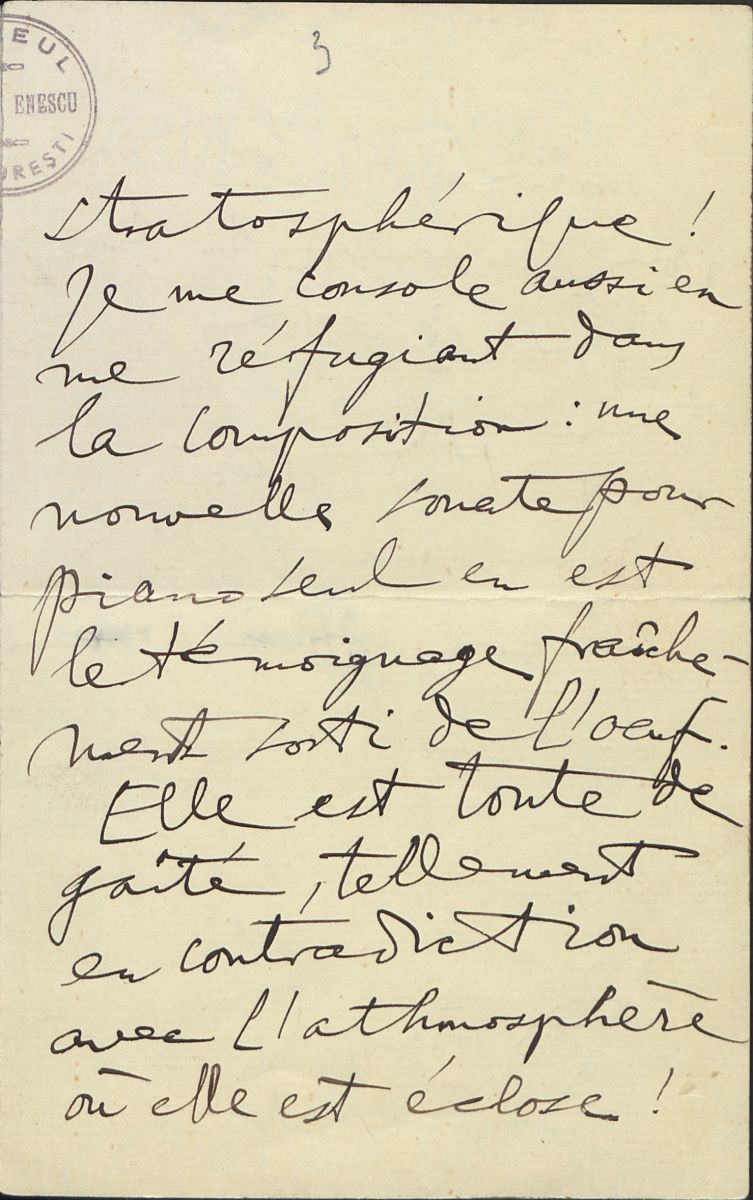 3
EUL
ENESCU
UREȘTI
stratosphérique !
Je me console aussi en
me réfugiant dans
la composition : une
nouvelle sonate pour
piano seul en est
le témoignage fraîche-
ment sorti de l'oeuf.
Elle est toute de
gaîté, tellement
en contradiction
avec l'athmosphère
où elle est éclose !